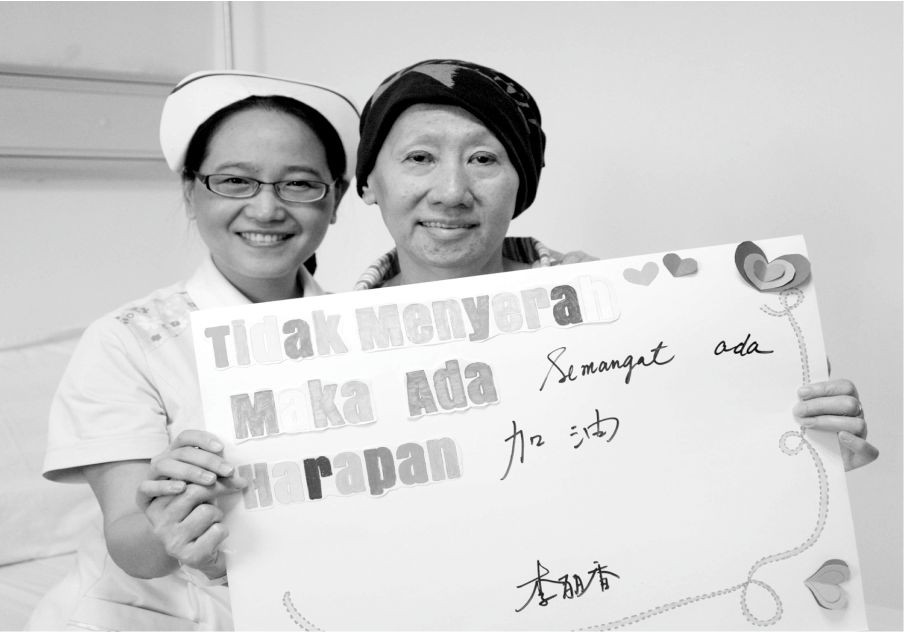 Tidak Menyerah
Maka Ada Semangat ada
Harapan 加油
李丽香